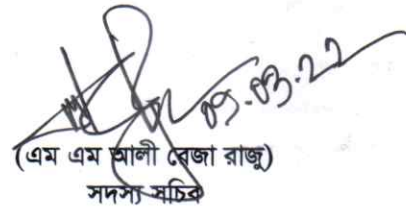 ০১.০৩.২২
(এম এম আলী রেজা রাজু)
সদস্য সচিব